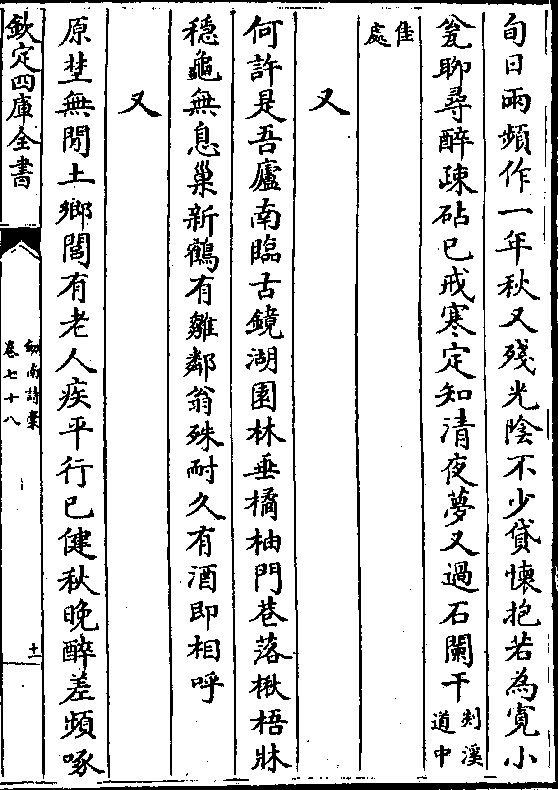 旬日雨頻作一年秋又殘光陰不少貸懷抱若為寬小
瓮聊尋醉疎砧已戒寒定知清夜夢又過石闌干剡溪道中
佳處
又
何許是吾廬南臨古鏡湖園林垂橘柚門巷落楸梧牀
穏龜無息巢新鶴有雛鄰翁殊耐久有酒即相呼
又
原埜無閒土鄉閭有老人疾平行已健秋晚醉差頻啄
欽定四庫全書
劒南詩稾
卷七十八
十一